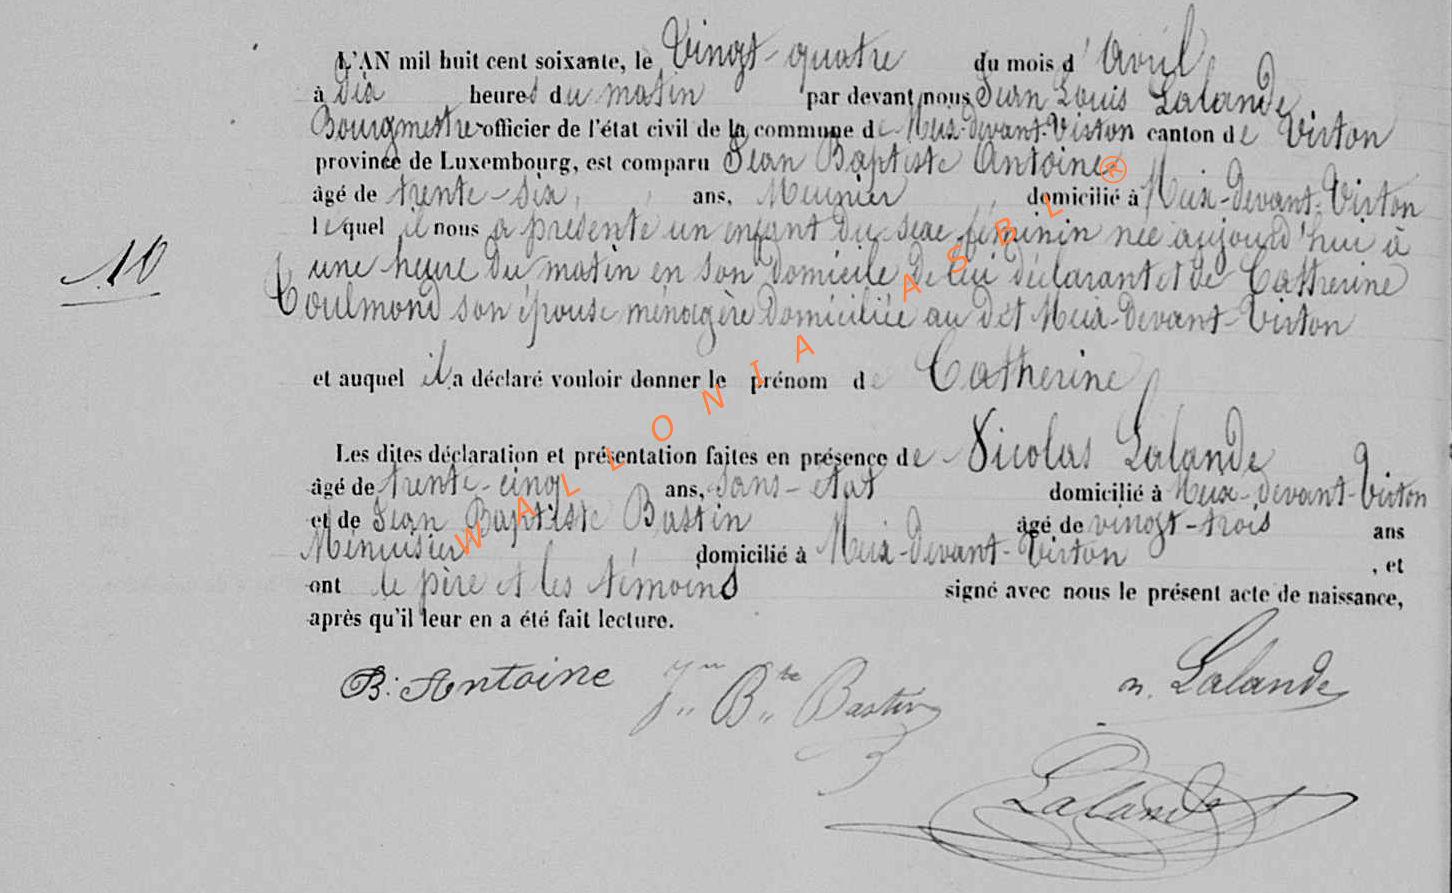 L'AN mil huit cent soixante, le Vingt-quatre du mois d'Avril
à dix heures du matin par devant nous Jean Louis Lalande
Bourgmestre officier de l'état civil de la commune de Meix-devant-Virton canton de Virton
province de Luxembourg, est comparu Jean Baptiste Antoine
âgé de trente-six ans, Meunier domicilié à Meix-devant-Virton
lequel il nous a présenté un enfant du sexe féminin née aujourd'hui à
10
une heure du matin en son domicile de lui déclarant et de Catherine
Toulmond son épouse ménagère domiciliée au dit Meix-devant-Virton
et auquel il a déclaré vouloir donner le prénom de Catherine
Les dites déclaration et présentation faites en présence de Nicolas Lalande
âgé de trente-cinq ans, sans-état domicilié à Meix-devant-Virton
et de Jean Baptiste Bastin âgé de vingt-trois ans
Menuisier domicilié à Meix-devant-Virton, et
ont le père et les témoins signé avec nous le présent acte de naissance,
après qu'il leur en a été fait lecture.
B: Antoine Jn Bte Bastin n. Lalande
Lalande
WALLONIA ASBL ®